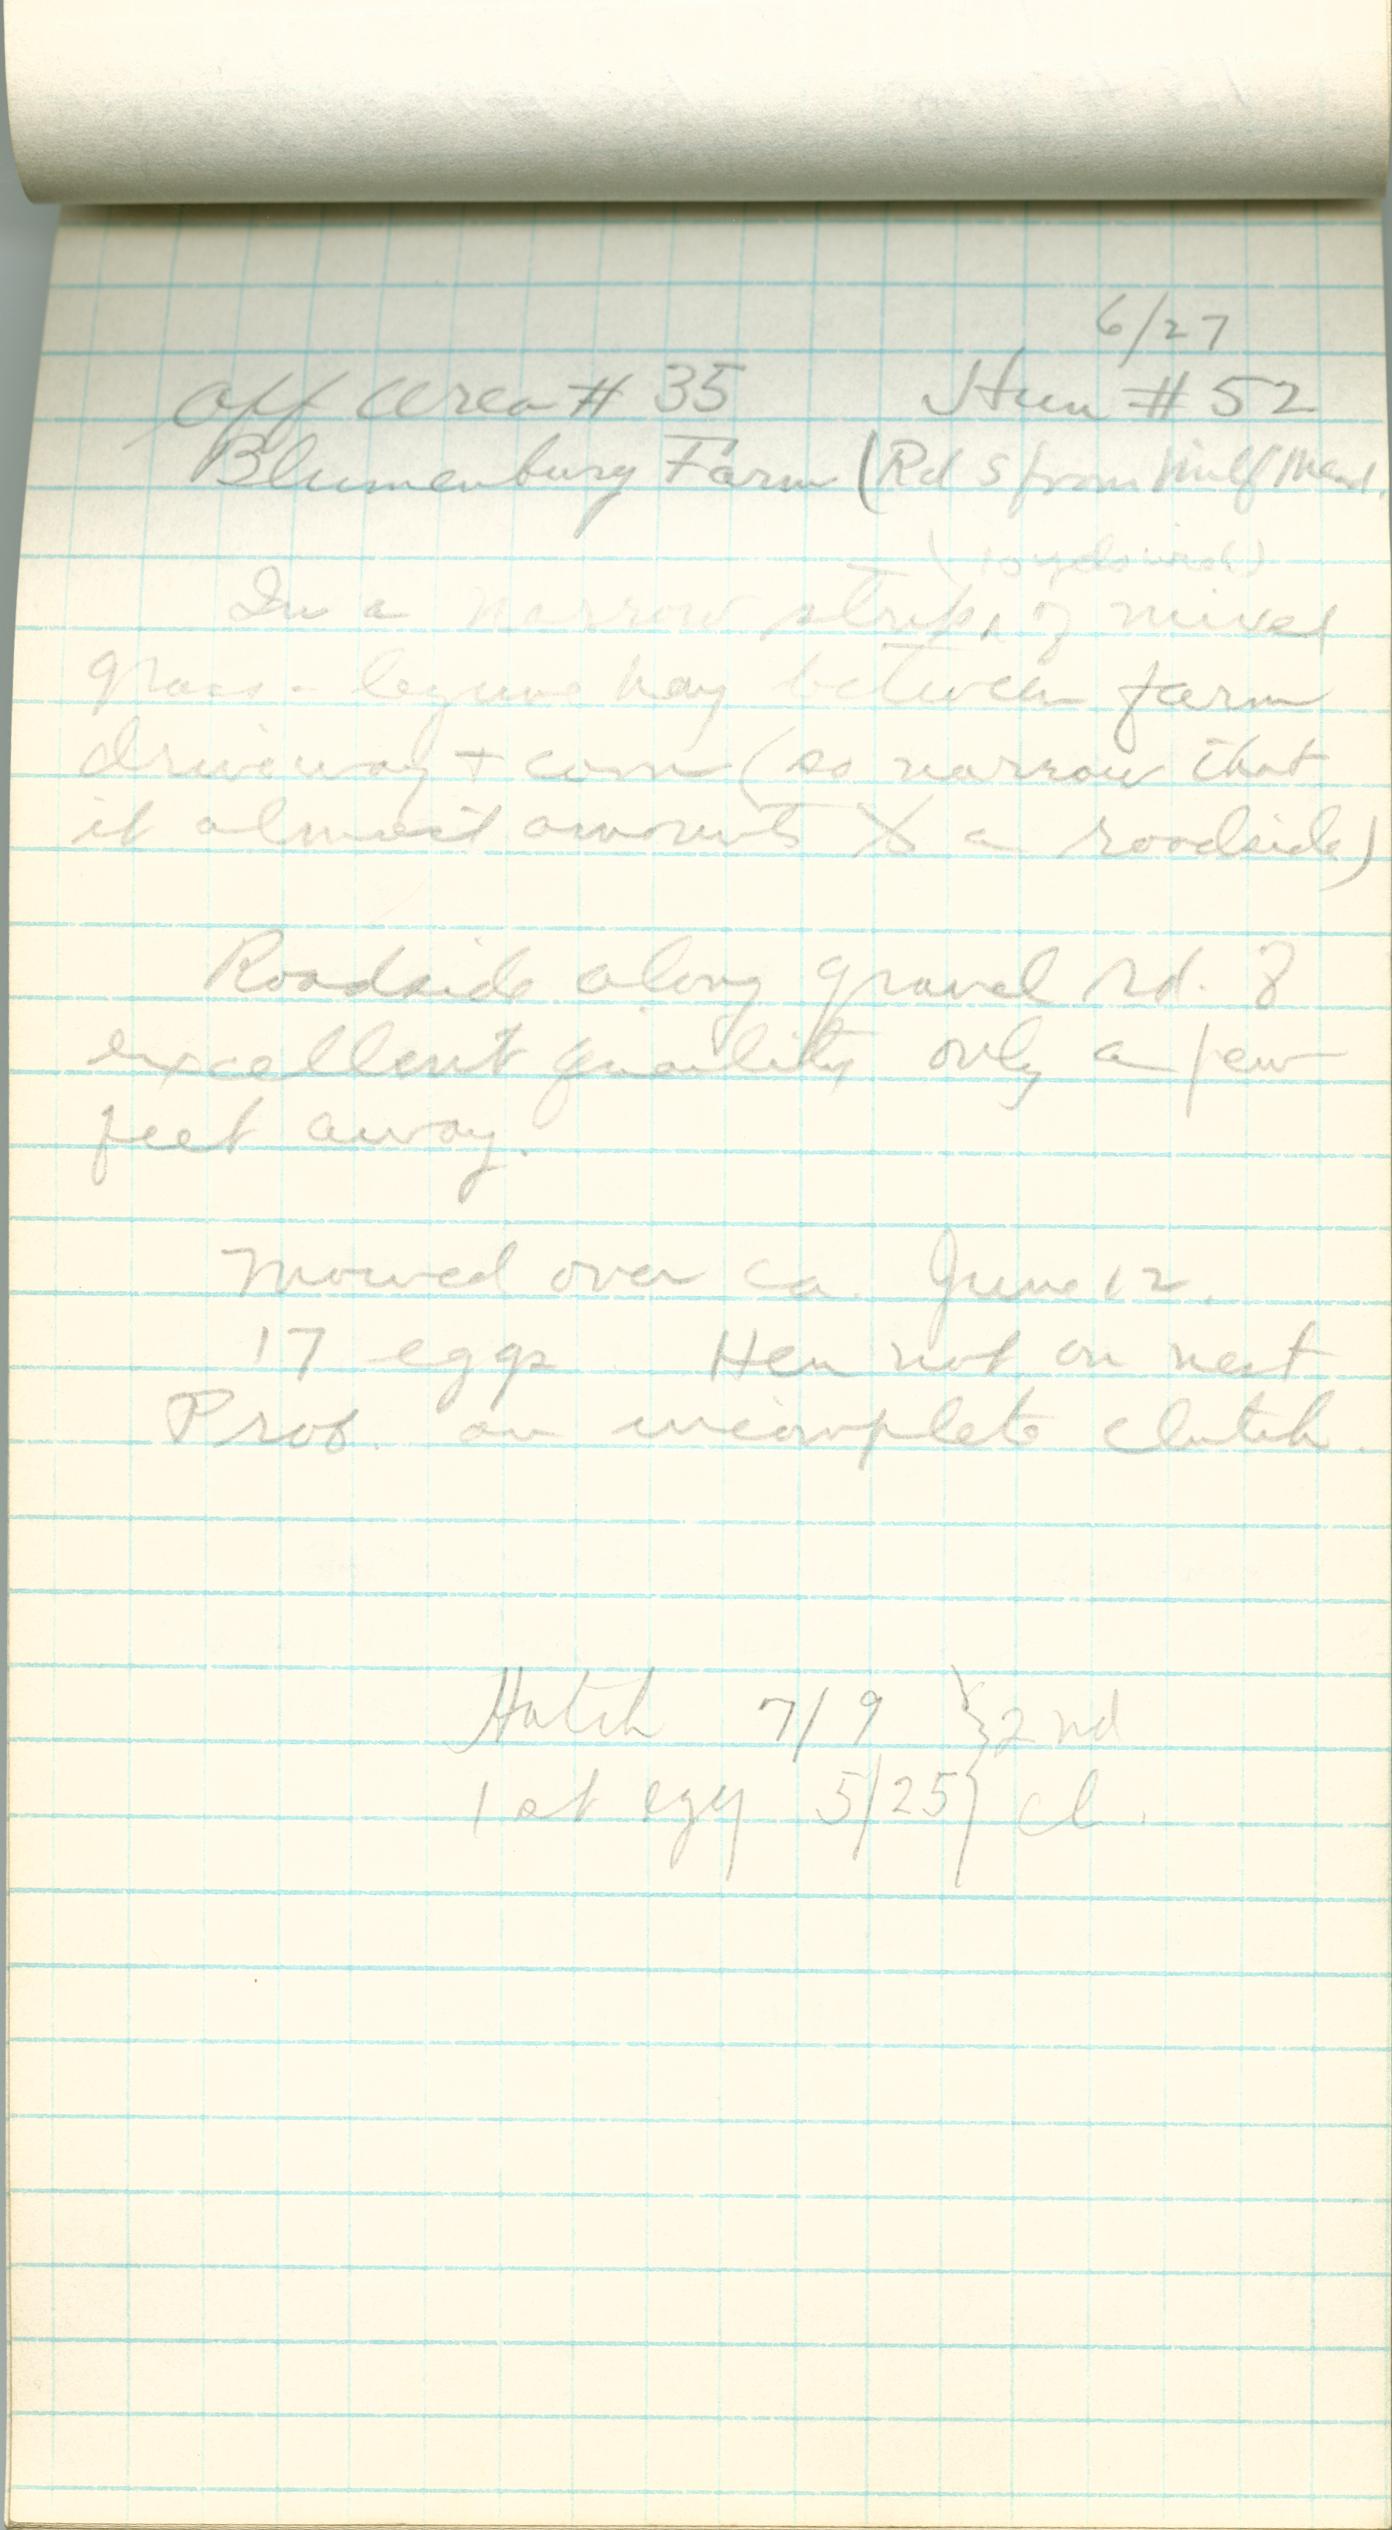 6/27
Off Area # 35 Hun # 52
Blumenburg Farm (Rd S from
(10 yds wide)
In a narrow strip ^ of mixed
grass-legume hay between farm
driveway + corn (so narrow that
it almost amounts to a roadside)
Roadside along gravel rd. of
excellent quality only a few
feet away.
Mowed over ca. June 12.
17 eggs Hen not on nest
Prob. an incomplete clutch.
Hatch 7/9 } 2nd
1st egg 5/25 } cl.